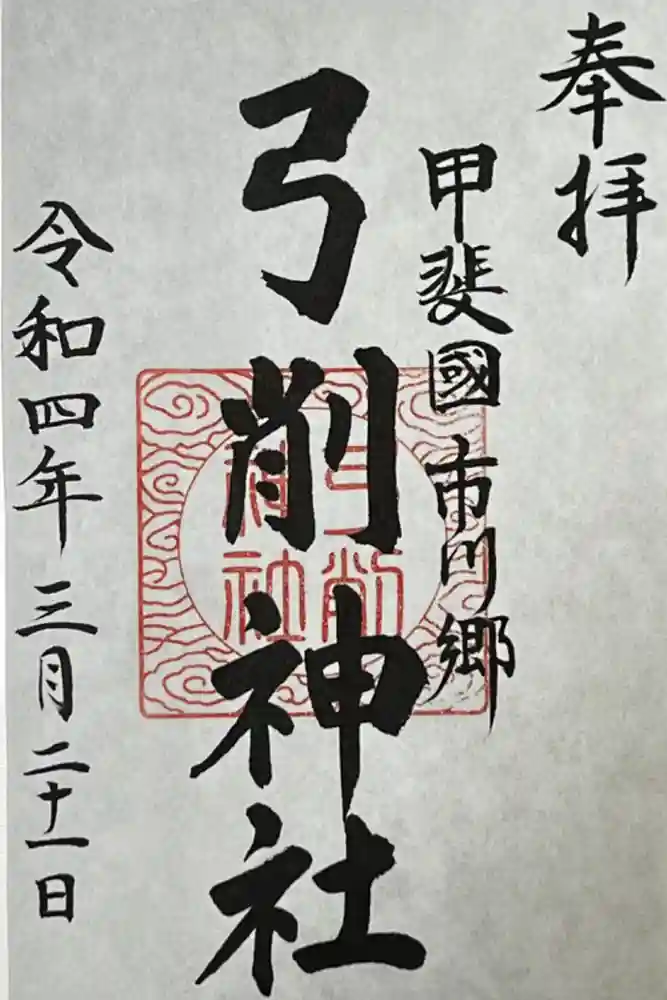 奉拝
甲斐國市川郷
弓削神社
弓削
神社
令和四年三月二十一日